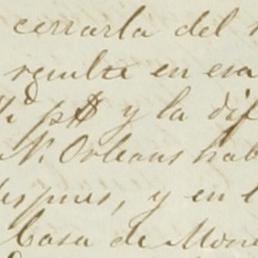 cerrarla del
resulta en esa
y la dif
N. Orleans hab
despues, y en l
Casa de Mon